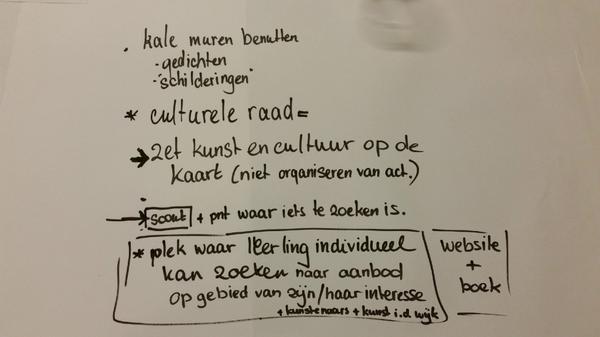 . kale muren benutten
- gedichten
- schilderingen
* culturele raad =
→ zet kunst en cultuur op de
kaart (niet organiseren van act.)
→ scout + pnt waar iets te zoeken is.
* plek waar leerling individueel
kan zoeken naar aanbod
op gebied van zijn/haar interesse
+ kunstenaars + kunst i.d wijk
website
+
boek